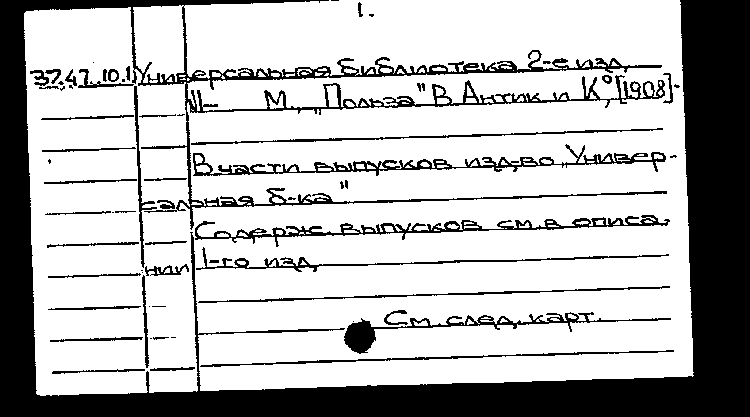 1.
37.47.10.1 Универсальная библиотека 2-е изд.
№1– М., „Польза" В. Антик и К°, [1908]-
В части выпусков изд-во „Универ-
сальная б-ка"
Содерж. выпусков см. в описа-
нии 1-го изд.
См. след. карт.